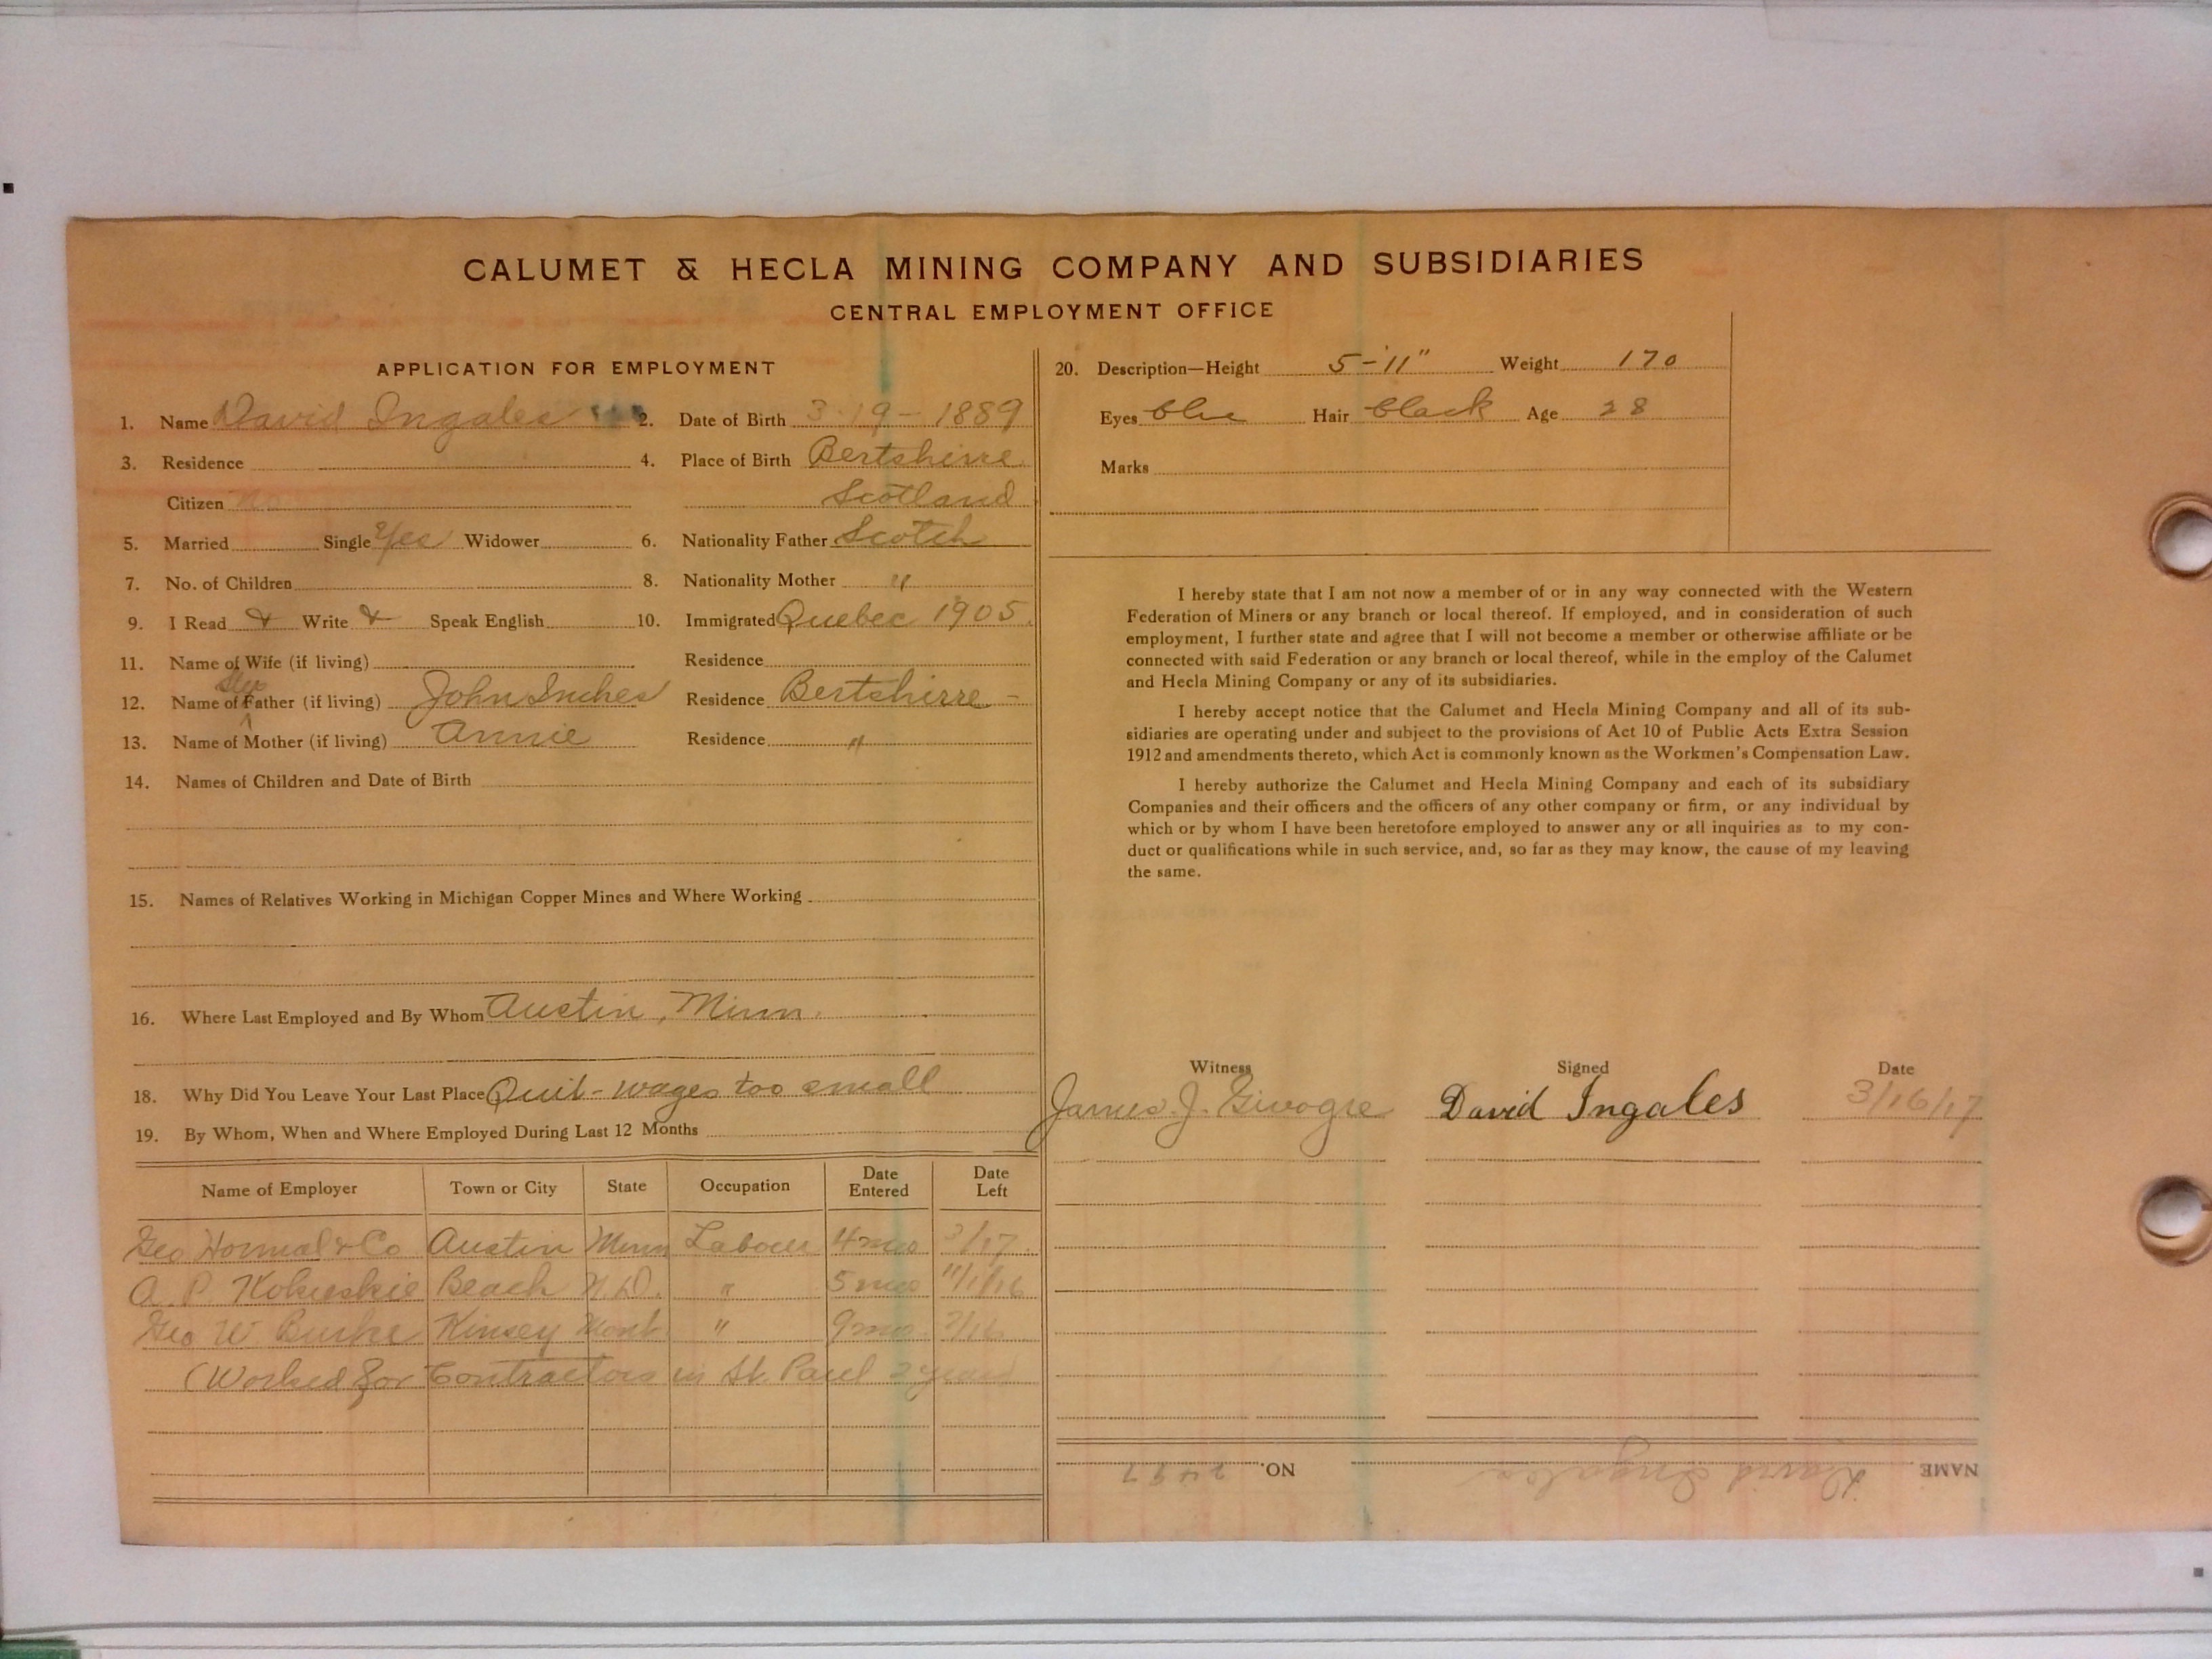 CALUMET & HECLA MINING COMPANY AND SUBSIDIARIES
CENTRAL EMPLOYMENT OFFICE
APPLICATION FOR EMPLOYMENT
1. Name David Ingales 2. Date of Birth 3-19-1889
3. Residence 4. Place of Birth Bertshirre
Citizen No Scotland
5. Married Single Yes Widower 6. Nationality Father Scotch
7. No. of Children 8. Nationality Mother "
9. I Read & Write & Speak English 10. Immigrated Quebec 1905
11. Name of Wife (if living) Residence
12. Name of Step Father (if living) John Inches Residence Bertshirre
13. Name of Mother (if living) Annie Residence "
14. Names of Children and Date of Birth
15. Names of Relatives Working in Michigan Copper Mines and Where Working
16. Where Last Employed and By Whom Austin, Minn.
18. Why Did You Leave Your Last Place Quit - wages too small
19. By Whom, When and Where Employed During Last 12 Months
Name of Employer Town or City State Occupation Date Entered Date Left
Geo Hormal & Co Austin Minn Labour 4 mo 3/17
A. P. Beach N.D. " 5 mo 11/1/16
Geo W Burke Kinsey Mont " 9 mo
(Worked for Contractors in St. Paul 2 years
20. Description—Height 5-11" Weight 170
Eyes blue Hair black Age 28
Marks
I hereby state that I am not now a member of or in any way connected with the Western
Federation of Miners or any branch or local thereof. If employed, and in consideration of such
employment, I further state and agree that I will not become a member or otherwise affiliate or be
connected with said Federation or any branch or local thereof, while in the employ of the Calumet
and Hecla Mining Company or any of its subsidiaries.
I hereby accept notice that the Calumet and Hecla Mining Company and all of its sub-
sidiaries are operating under and subject to the provisions of Act 10 of Public Acts Extra Session
1912 and amendments thereto, which Act is commonly known as the Workmen's Compensation Law.
I hereby authorize the Calumet and Hecla Mining Company and each of its subsidiary
Companies and their officers and the officers of any other company or firm, or any individual by
which or by whom I have been heretofore employed to answer any or all inquiries as to my con-
duct or qualifications while in such service, and, so far as they may know, the cause of my leaving
the same.
Witness Signed Date
James J. David Ingales 3/16/17
NAME David Ingales NO. 2497